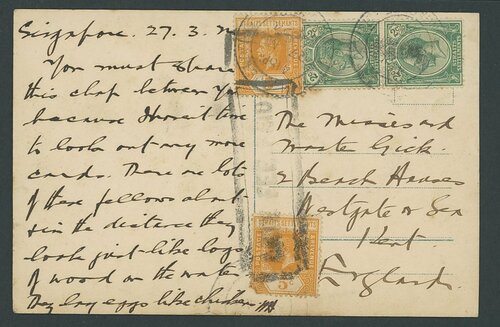 Singapore. 27.3.
You must share
this chap between you
because I havent time
to look out any more
cards. There are lots
of these fellows about
& in the distance they
look just like logs
of wood on the water
They lay eggs like chickens
STRAITS SETTLEMENTS
The Misses and
Master Gick.
2 Beach Houses
Westgate on Sea
Kent.
England.